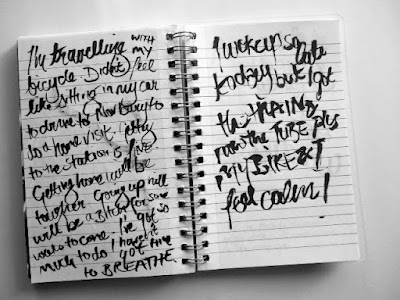 I'm travelling WITH
my
bicycle. Didn't feel
like sitting in my car
to drive to Newbury to
do a home visit. Getting
to the station is fine.
Getting home will be
tougher. Going up hill
will be a Bitch for some
weeks to come. I've got so
much to do I haven't
got time
to BREATHE.
I woke up so
late
today but I got
the TRAIN &
now the TUBE plus
My BIKE & I
feel calm!